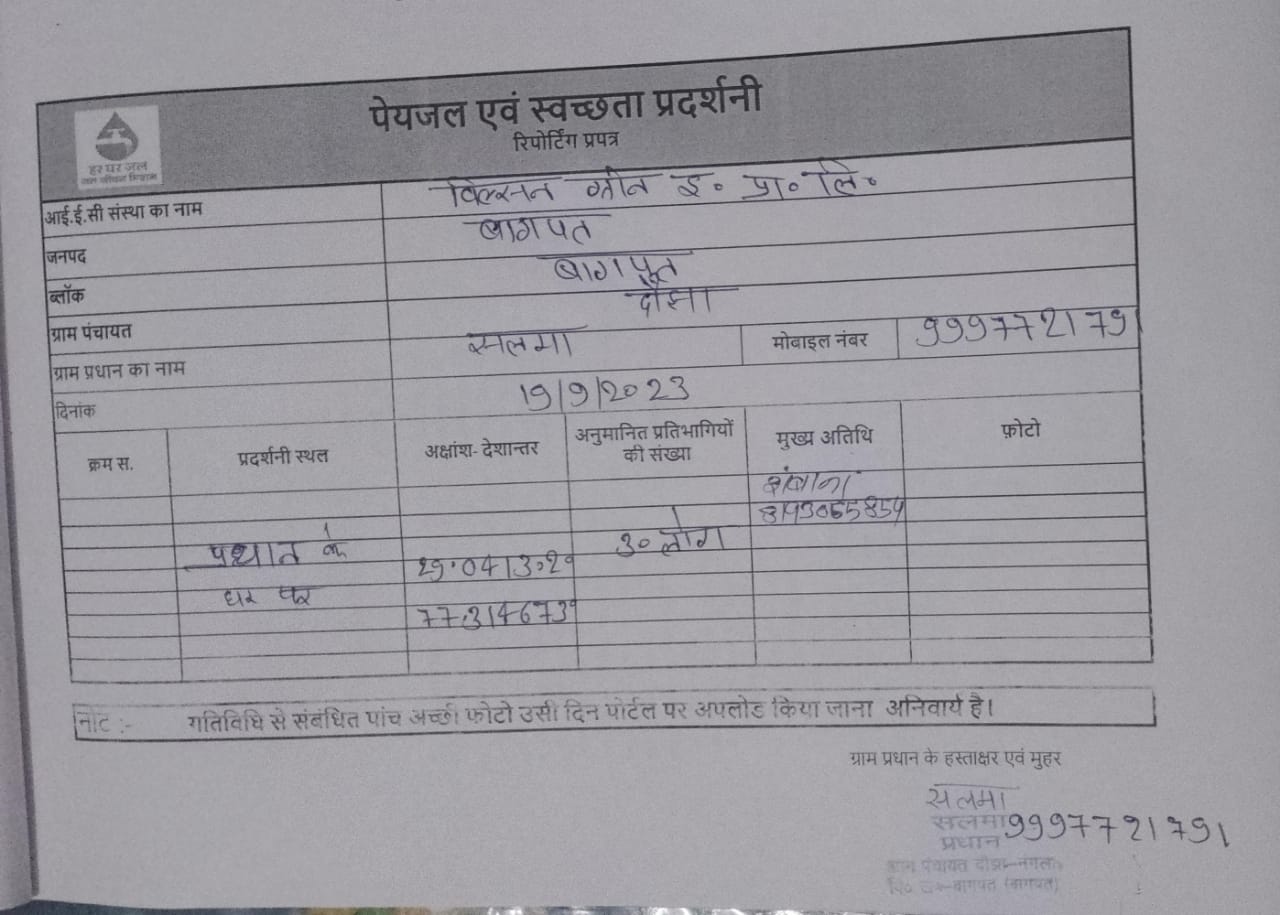 पेयजल एवं स्वच्छता प्रदर्शनी
रिपोर्टिंग प्रपत्र
हर घर जल
जल जीवन मिशन
आई.ई.सी संस्था का नाम विल्सन ग्रीन इ० प्रा० लि०
जनपद बागपत
ब्लॉक बागपत
ग्राम पंचायत दोझा
ग्राम प्रधान का नाम सलमा मोबाइल नंबर 9997721791
दिनांक 19/9/2023
क्रम स. प्रदर्शनी स्थल अक्षांश- देशान्तर अनुमानित प्रतिभागियों की संख्या मुख्य अतिथि फ़ोटो
प्रधान के 30 लोग
घर पर
77.314673°
नोट :- गतिविधि से संबंधित पांच अच्छी फोटो उसी दिन पोर्टल पर अपलोड किया जाना अनिवार्य है।
ग्राम प्रधान के हस्ताक्षर एवं मुहर
सलमा
सलमा 9997721791
प्रधान
ग्राम पंचायत दोझा-नंगला
बागपत (बागपत)